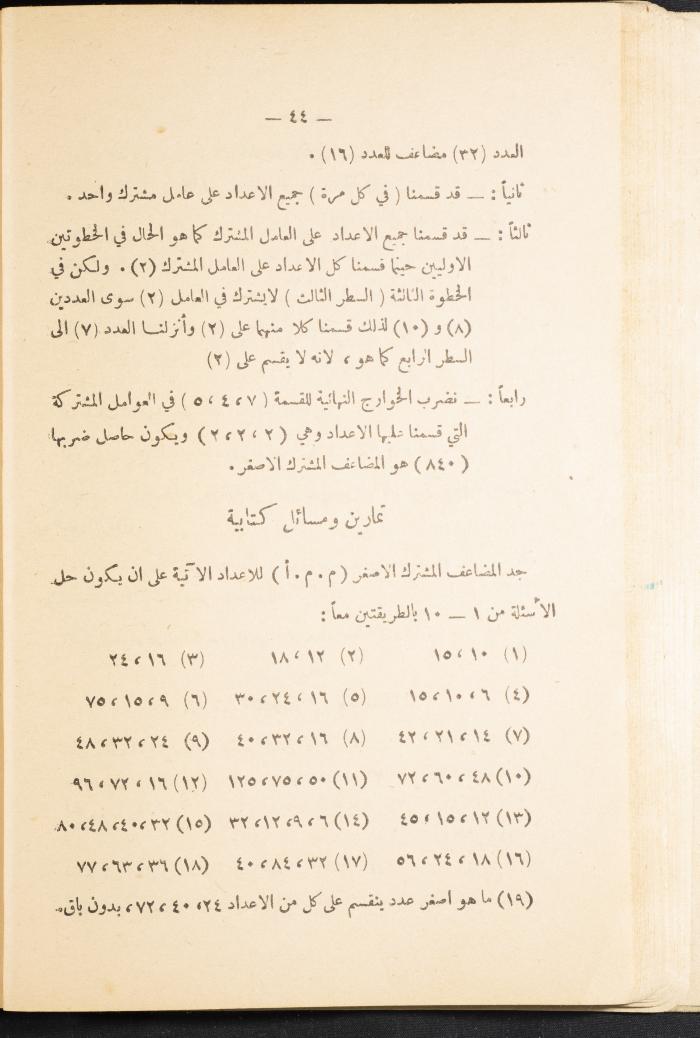 — ٤٤ —
العدد (٣٢) مضاعف للعدد (١٦) .
ثانياً : — قد قسمنا ( في كل مرة ) جميع الاعداد على عامل مشترك واحد .
ثالثاً : — قد قسمنا جميع الاعداد على العامل المشترك كما هو الحال في الخطوتين
الاوليين حينما قسمنا كل الاعداد على العامل المشترك (٢) . ولكن في
الخطوة الثالثة ( السطر الثالث ) لايشترك في العامل (٢) سوى العددين
(٨) و (١٠) لذلك قسمنا كلا منهما على (٢) وأنزلنـا العدد (٧) الى
السطر الرابع كما هو ، لانه لا يقسم على (٢)
رابعاً : — نضرب الخوارج النهائية للقسمة ( ٧ ، ٤ ، ٥ ) في العوامل المشتركة
التي قسمنا عليها الاعداد وهي ( ٢ ، ٢ ، ٢ ) ويكون حاصل ضربها
( ٨٤٠ ) هو المضاعف المشترك الاصغر .
تمارين ومسائل كتابية
جد المضاعف المشترك الاصغر ( م . م . أ ) للاعداد الآتية على ان يكون حل
الأسئلة من ١ — ١٠ بالطريقتين معاً :
(١) ١٠ ، ١٥ (٢) ١٢ ، ١٨ (٣) ١٦ ، ٢٤
(٤) ٦ ، ١٠ ، ١٥ (٥) ١٦ ، ٢٤ ، ٣٠ (٦) ٩ ، ١٥ ، ٧٥
(٧) ١٤ ، ٢١ ، ٤٢ (٨) ١٦ ، ٣٢ ، ٤٠ (٩) ٢٤ ، ٣٢ ، ٤٨
(١٠) ٤٨ ، ٦٠ ، ٧٢ (١١) ٥٠ ، ٧٥ ، ١٢٥ (١٢) ١٦ ، ٧٢ ، ٩٦
(١٣) ١٢ ، ١٥ ، ٤٥ (١٤) ٦ ، ٩ ، ١٢ ، ٣٢ (١٥) ٣٢ ، ٤٠ ، ٤٨ ، ٨٠
(١٦) ١٨ ، ٢٤ ، ٥٦ (١٧) ٣٢ ، ٨٤ ، ٤٠ (١٨) ٣٦ ، ٦٣ ، ٧٧
(١٩) ما هو اصغر عدد ينقسم على كل من الاعداد ٢٤ ، ٤٠ ، ٧٢ ، بدون باق .